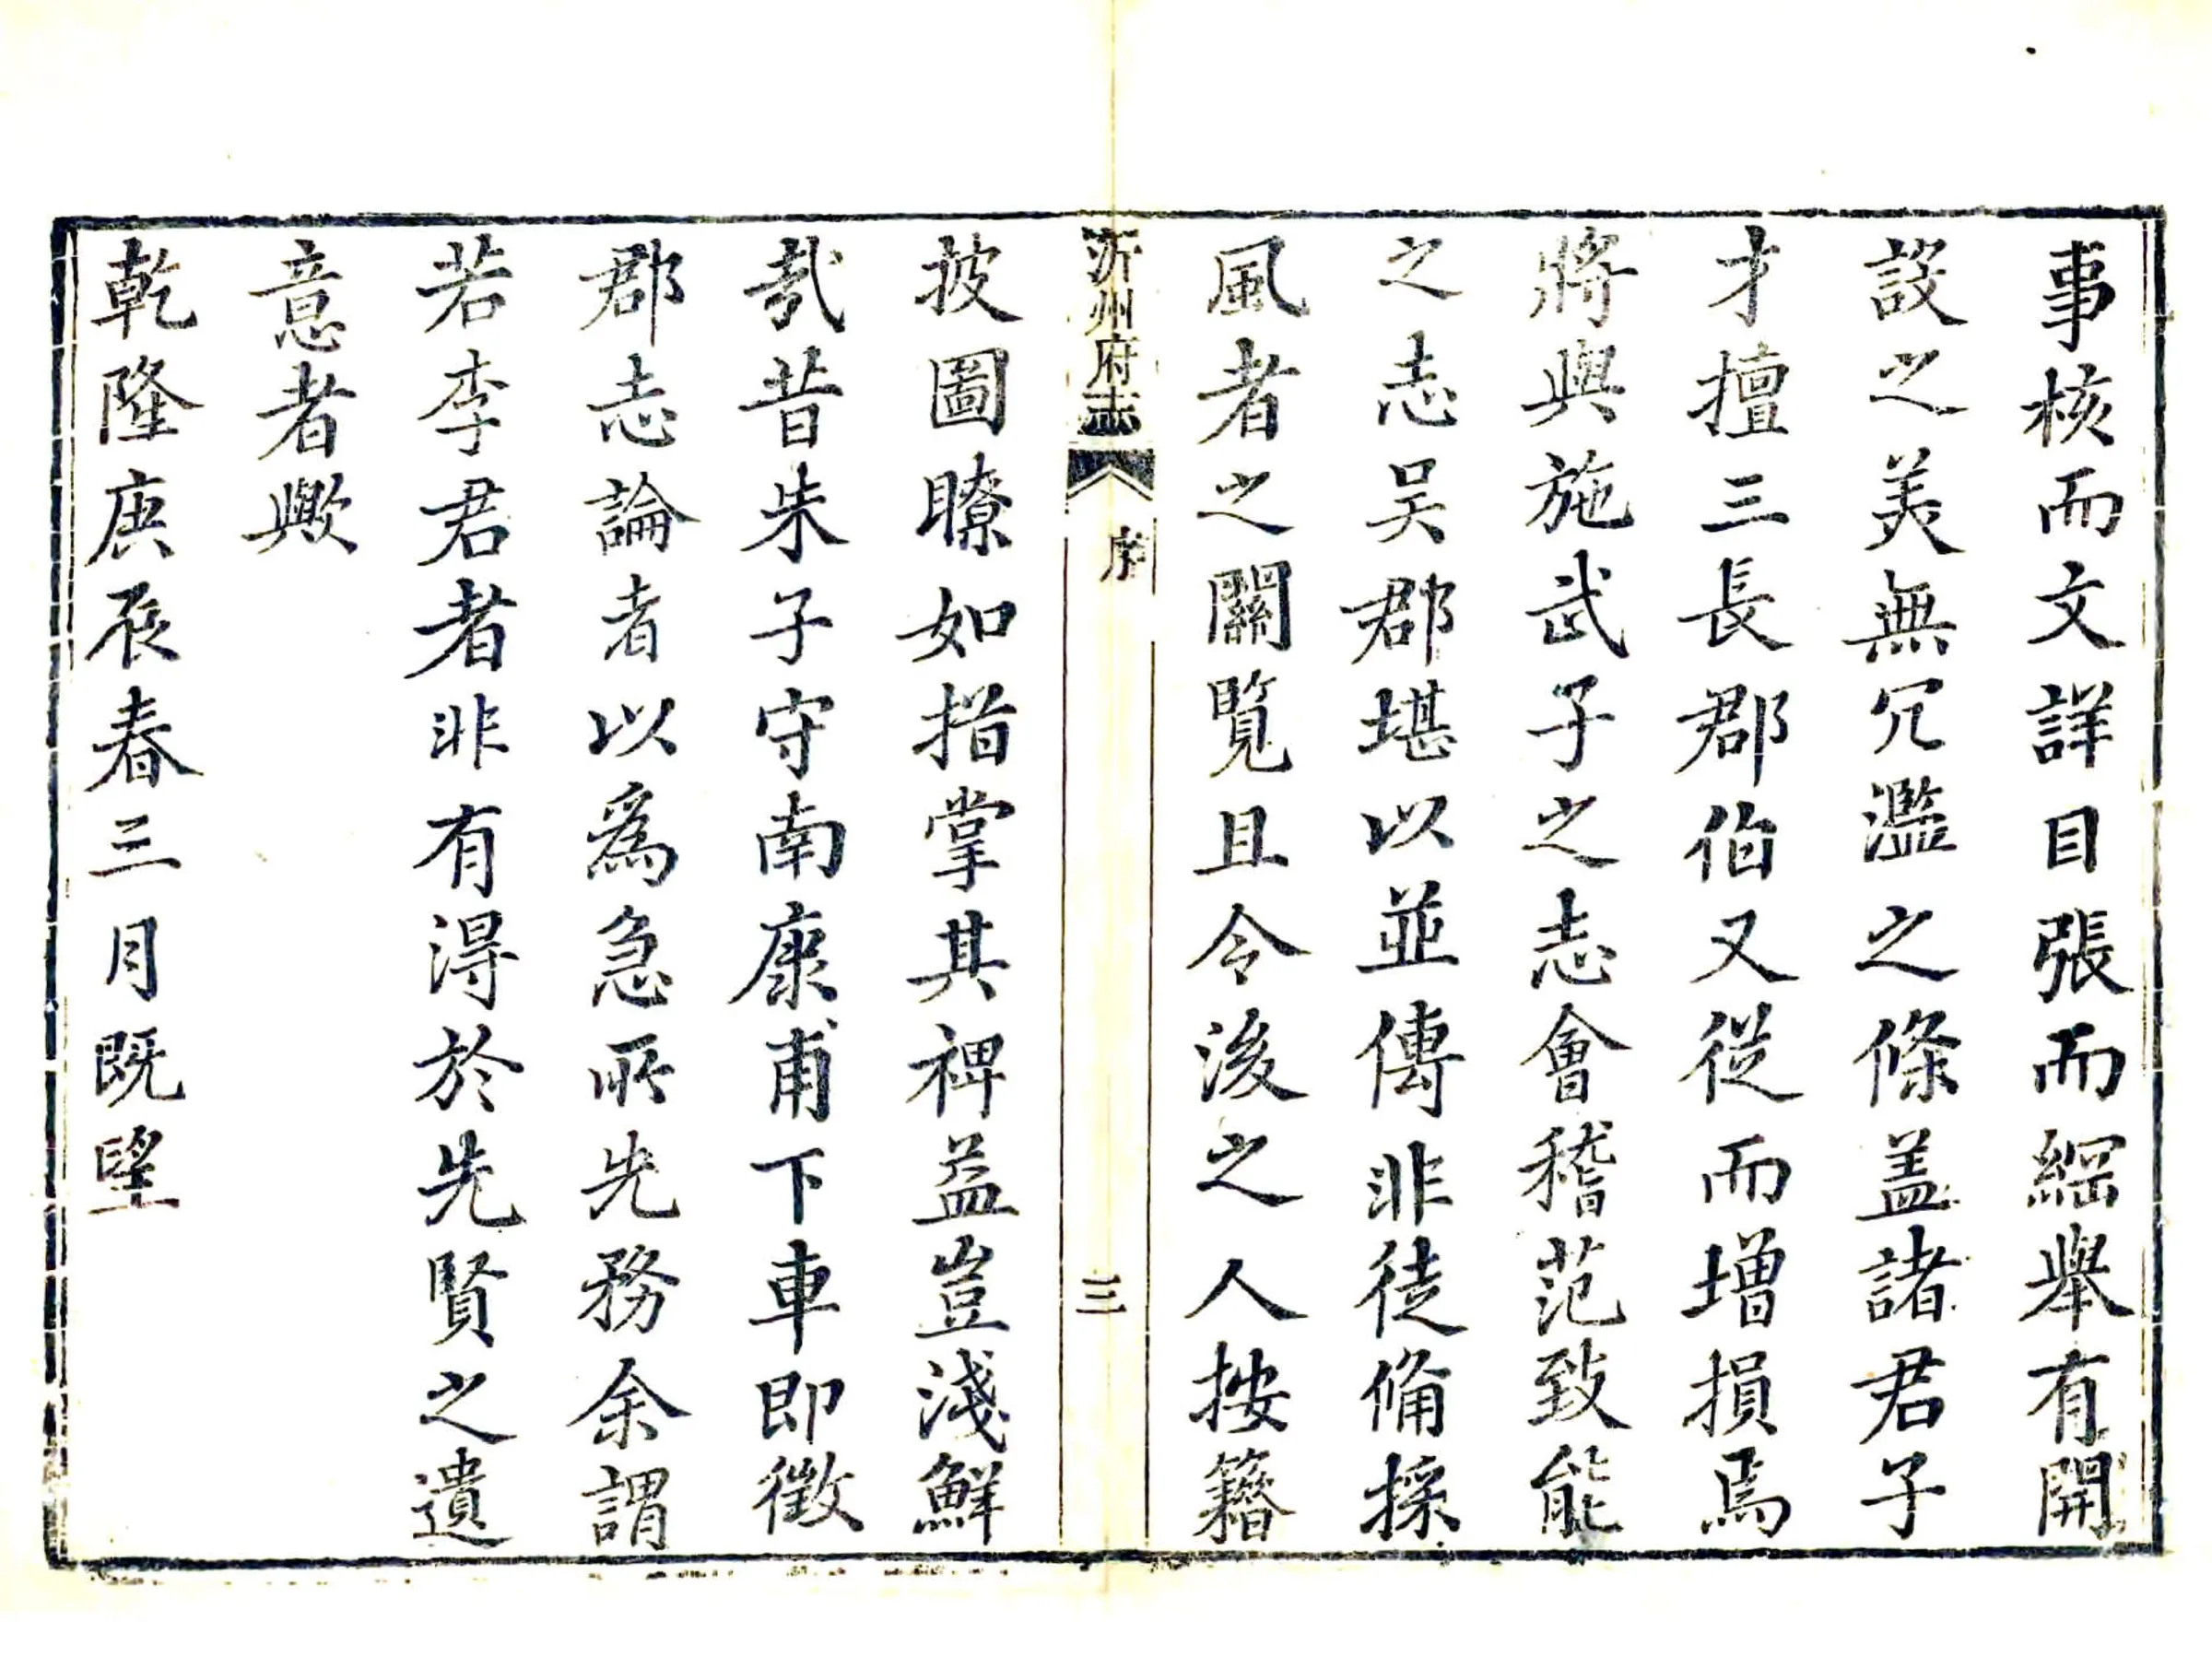 事核而文詳目張而綱舉有開
設之美無冗濫之條盖諸君子
才擅三長郡伯又從而增損焉
將與施武子之志會稽范致能
之志吴郡堪以並傳非徒備採
風者之闗覧且令後之人按籍
沂州府志 序 三
披圖瞭如指掌其裨益豈淺鮮
㢤昔朱子守南康甫下車即徵
郡志論者以為急所先務余謂
若李君者非有得於先賢之遺
意者歟
乾隆庚辰春三月既望